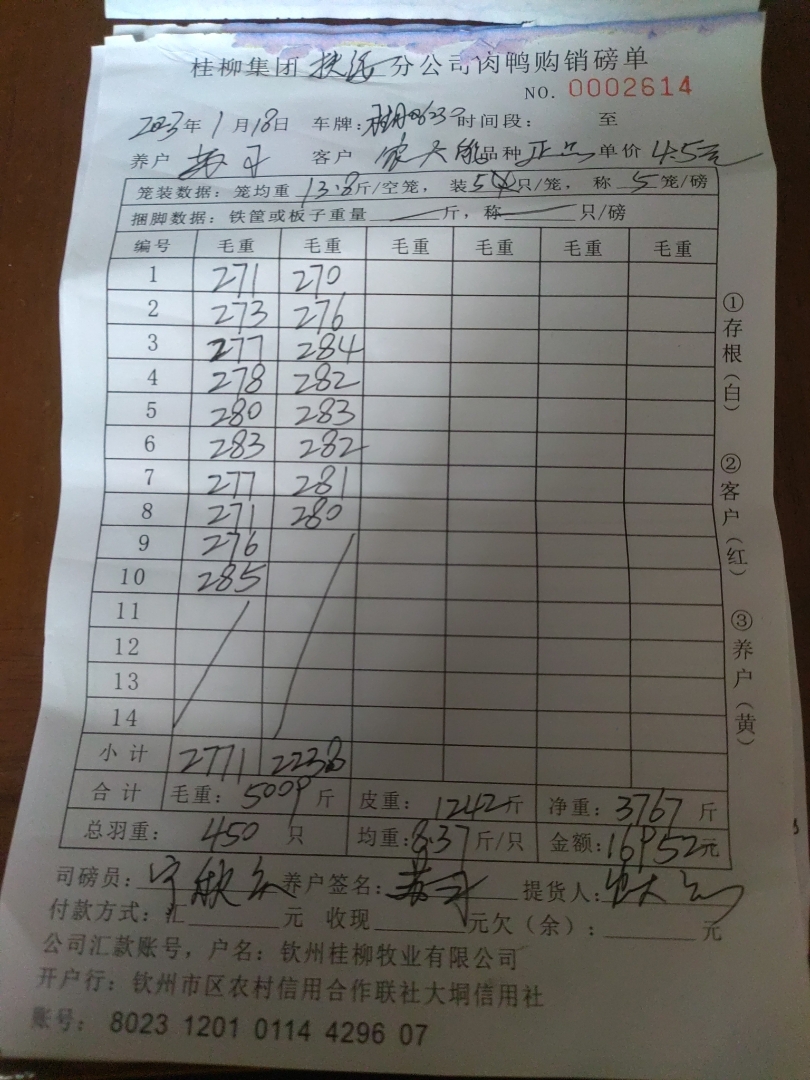 桂柳集团扶绥分公司肉鸭购销磅单
NO. 0002614
2023年1月18日 车牌: 时间段: 至
养户 客户 品种 正品 单价 4.5元
笼装数据: 笼均重 13.8斤/空笼, 装5只/笼, 称 5笼/磅
捆脚数据: 铁筐或板子重量 斤, 称 只/磅
编号 毛重 毛重 毛重 毛重 毛重 毛重
1 271 270
2 273 276
3 277 284
4 278 282
5 280 283
6 283 282
7 277 281
8 271 280
9 276
10 285
11
12
13
14
小计 2771 2238
合计 毛重: 5009斤 皮重: 1242斤 净重: 3767斤
总羽重: 450只 均重: 8.37斤/只 金额: 16952元
司磅员: 养户签名: 提货人:
付款方式: 汇 元 收现 元欠（余）: 元
公司汇款账号, 户名: 钦州桂柳牧业有限公司
开户行: 钦州市区农村信用合作联社大垌信用社
账号: 8023 1201 0114 4296 07
①存根（白）
②客户（红）
③养户（黄）